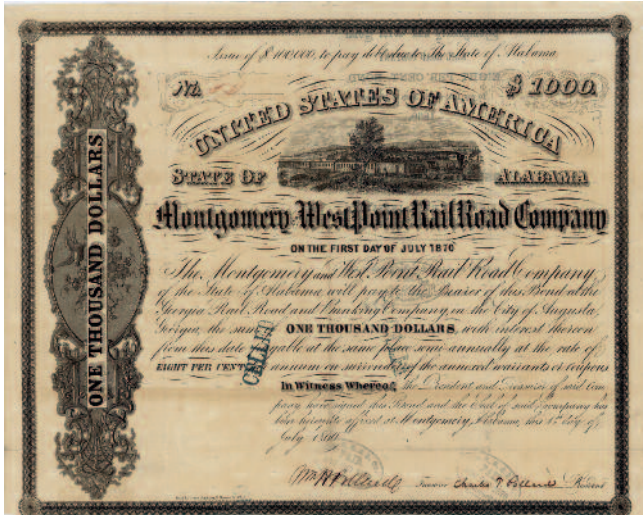 Issue of $100,000, to pay debt due to The State of Alabama
No.
$1000.
UNITED STATES OF AMERICA
STATE OF ALABAMA
Montgomery & West Point Rail Road Company
ON THE FIRST DAY OF JULY 1876
The Montgomery and West Point Rail Road Company
of the State of Alabama will pay to the Bearer of this Bond at the
Georgia Rail Road and Banking Company, in the City of Augusta,
Georgia, the sum ONE THOUSAND DOLLARS, with interest thereon
from this date payable at the same place semi-annually at the rate of
EIGHT PER CENT annum on surrender of the annexed warrants or coupons
In Witness Whereof, the President and Treasurer of said Com-
pany have signed this Bond and the Seal of said Company has
been hereunto affixed at Montgomery, Alabama, this 1st day of
July
Treasurer Charles T. Pollard President
ONE THOUSAND DOLLARS